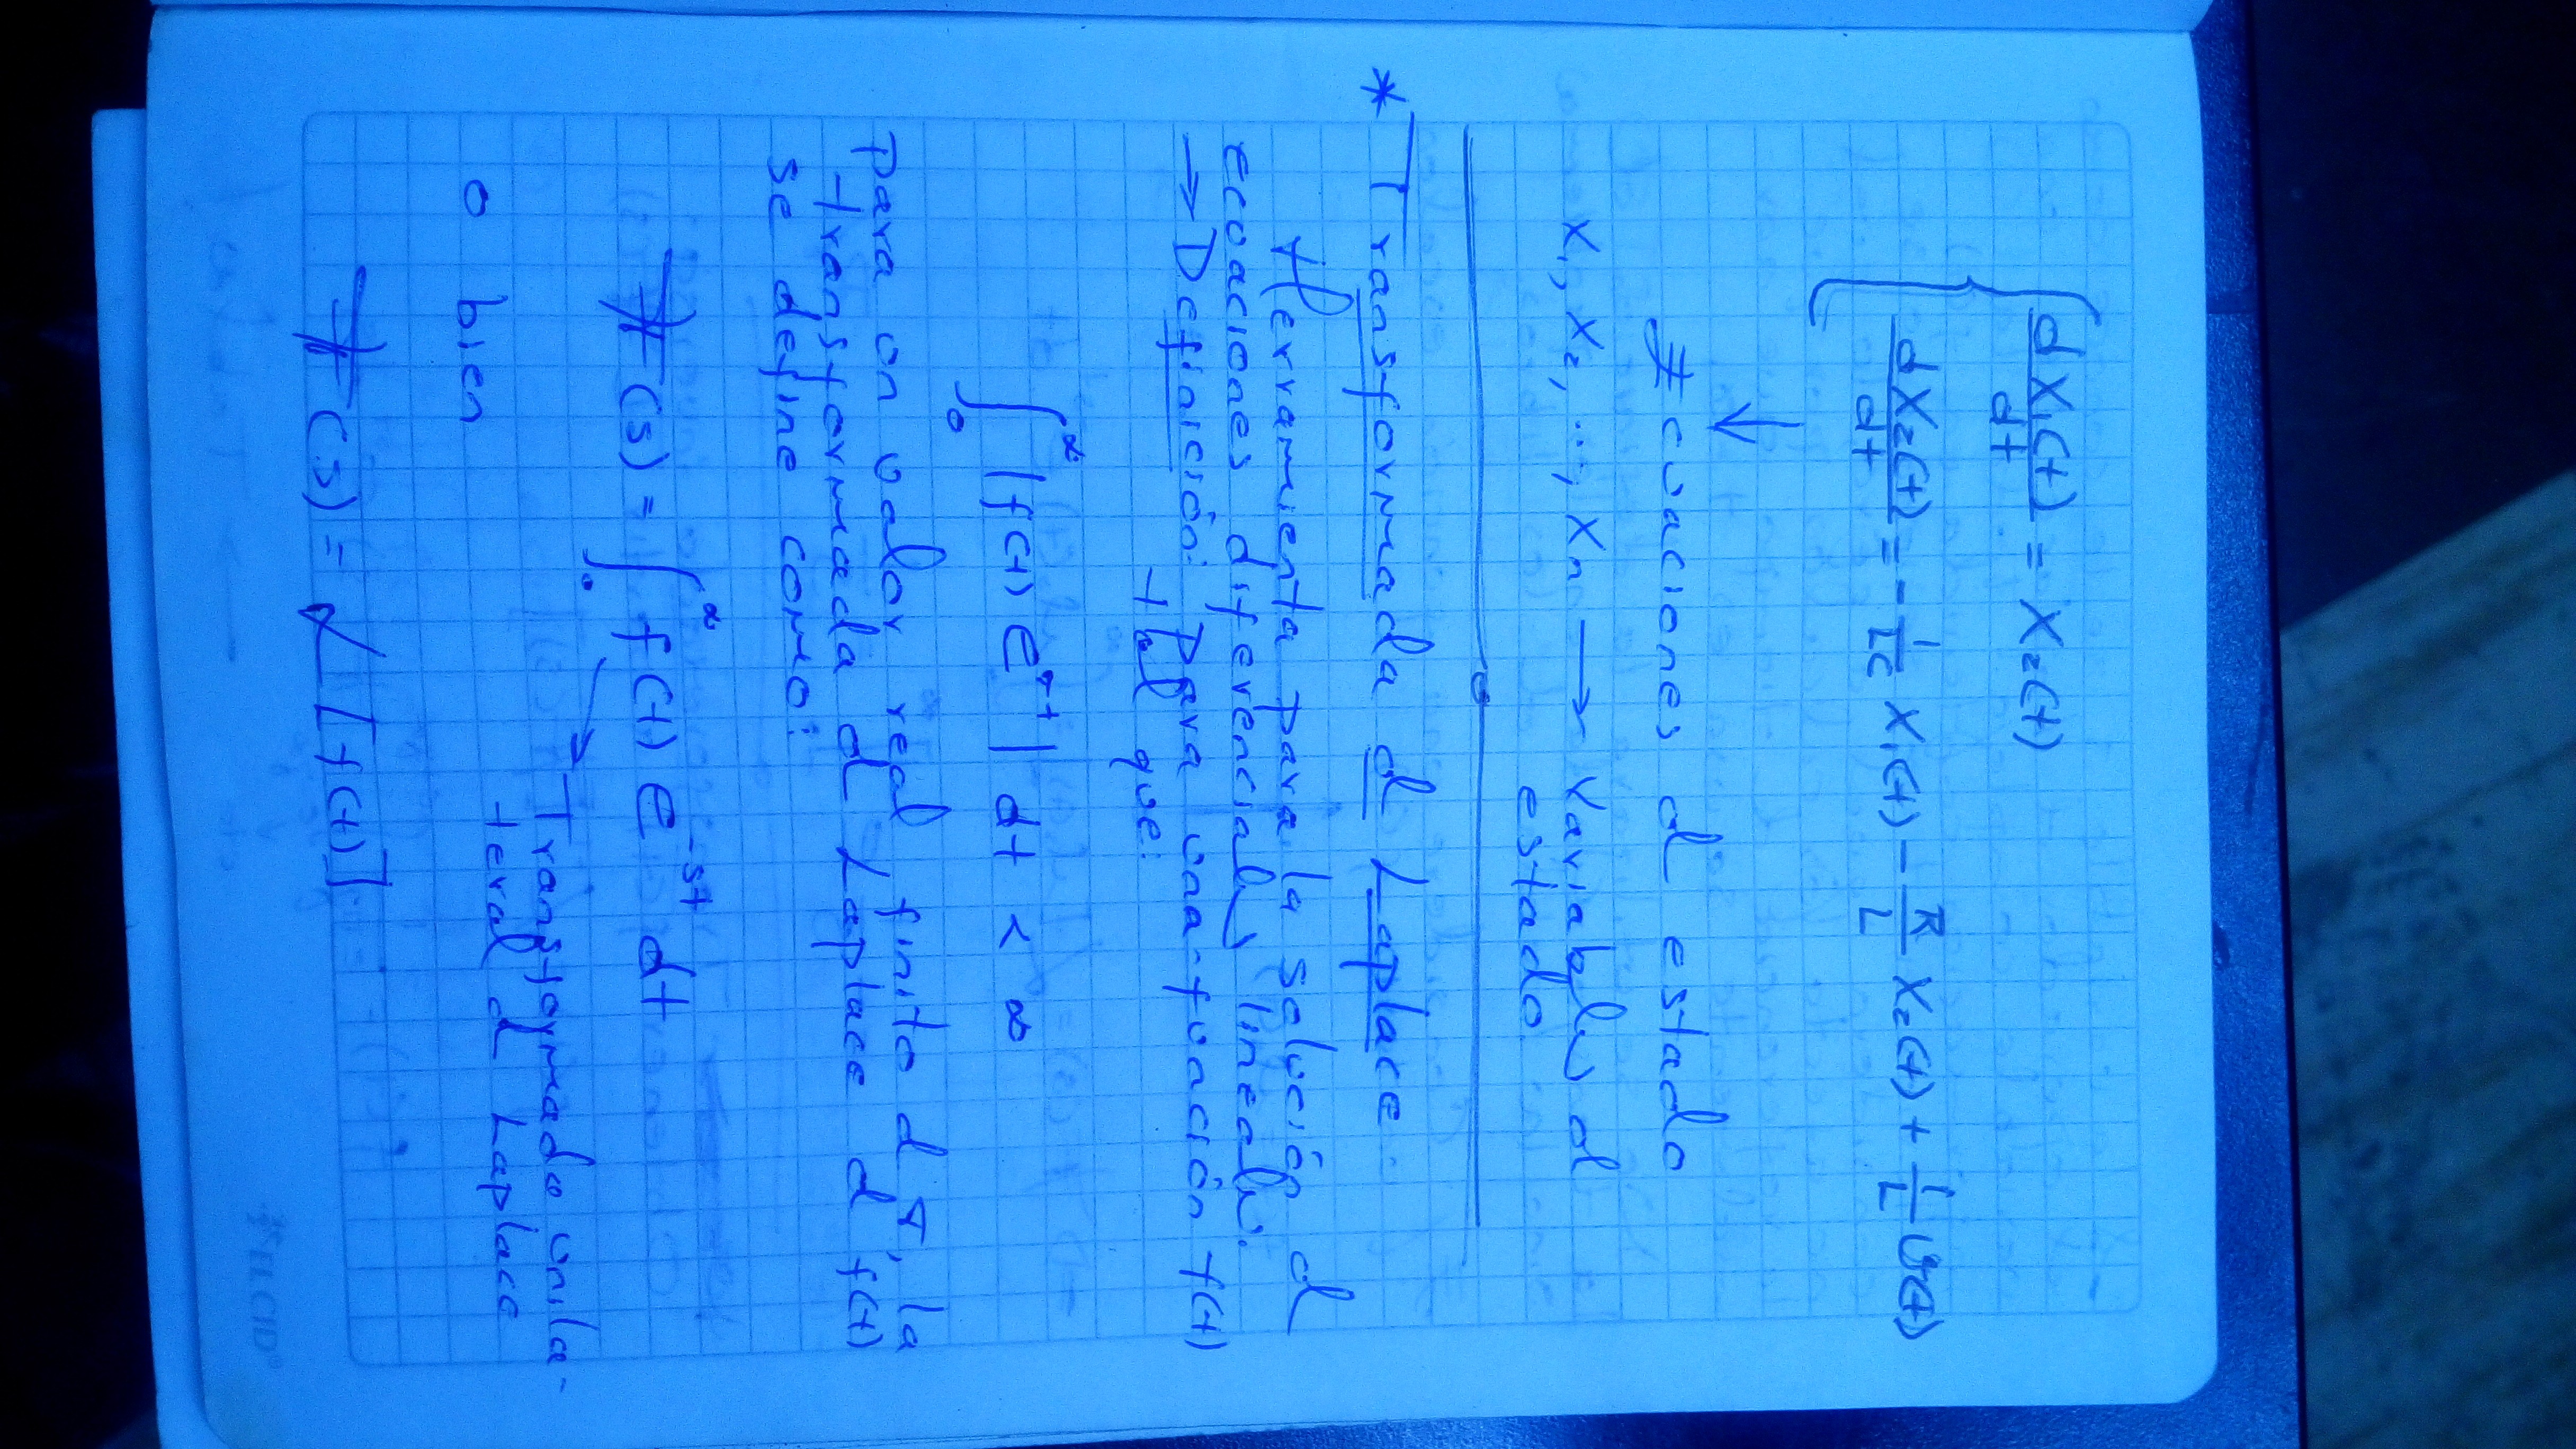 dX₁(t)/dt = X₂(t)
dX₂(t)/dt = -1/LC X₁(t) - R/L X₂(t) + 1/L v(t)
Ecuaciones d estado
X₁, X₂, ..., Xn → Variables d
estado
* Transformada d Laplace
Herramienta para la solución d
ecuaciones diferenciales lineales.
→ Definición: para una función f(t)
tal que:
∫₀^∞ |f(t) e^σt| dt < ∞
para un valor real finito d σ, la
transformada d Laplace d f(t)
se define como:
F(s) = ∫₀^∞ f(t) e^-st dt
Transformada unila-
teral d Laplace
o bien
F(s) = ℒ [f(t)]
EL CID